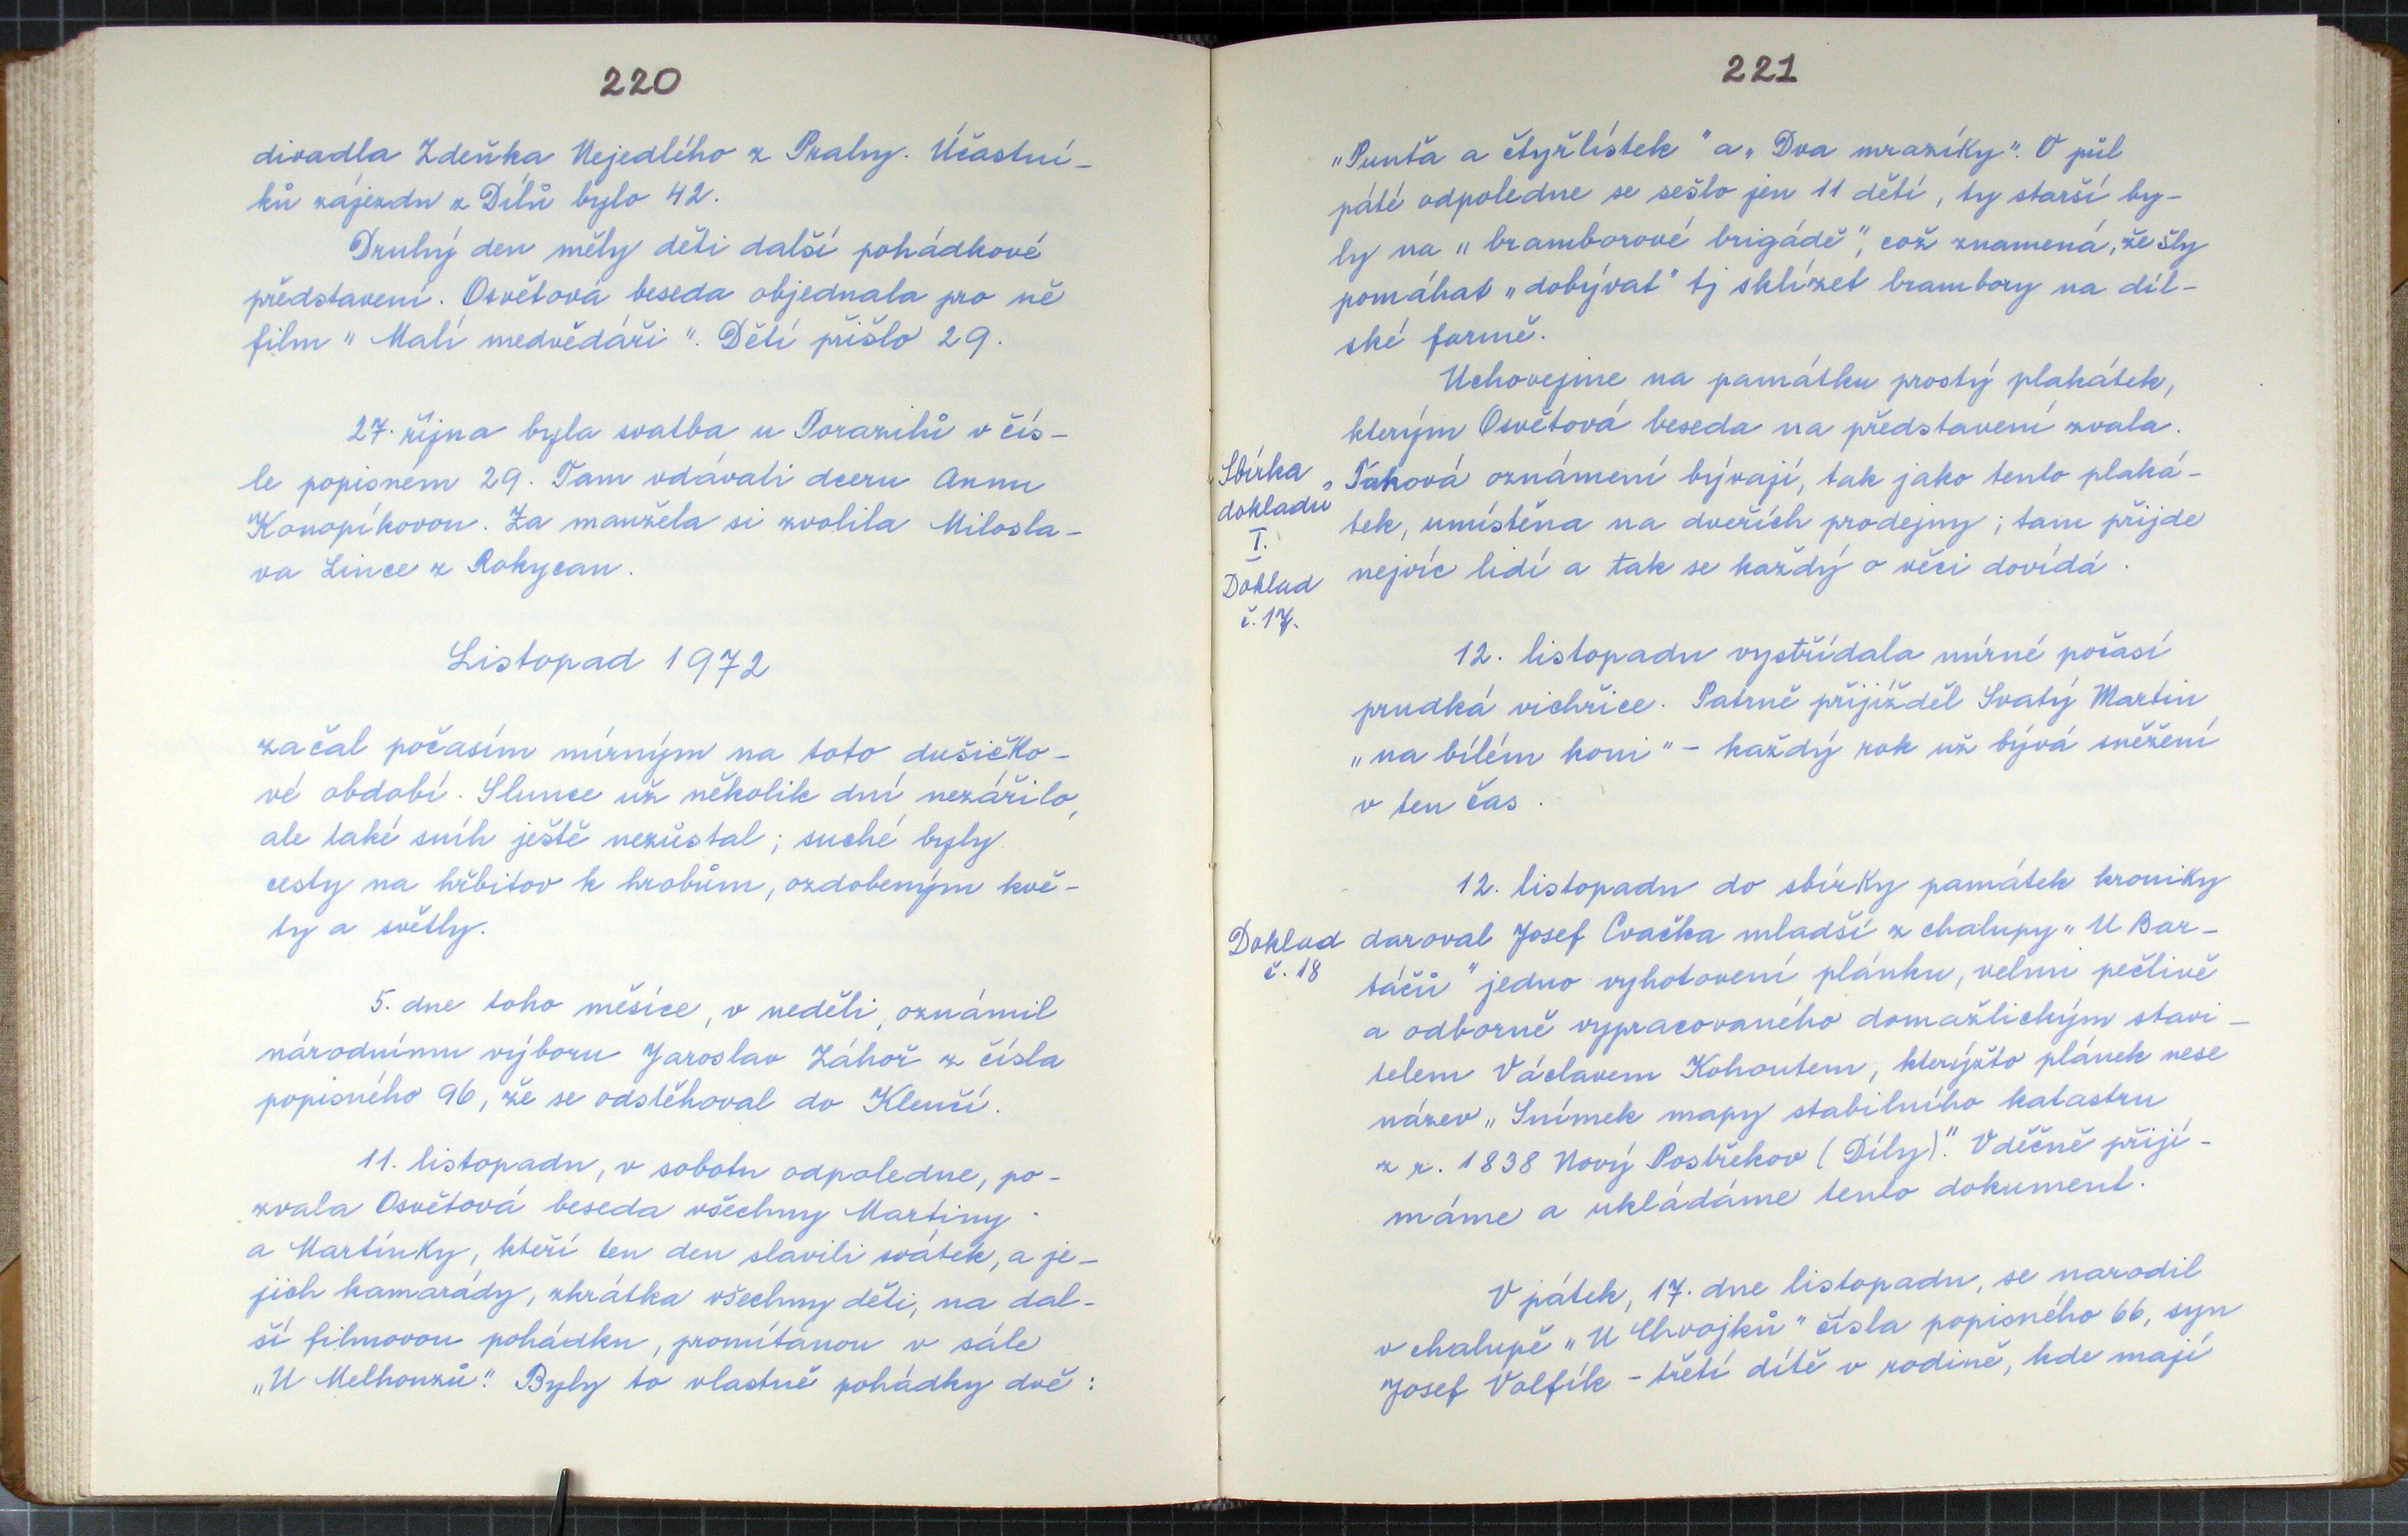 220
divadla Zdeňka Nejedlého z Prahy. Účastní-
ků zájezdu z Dílů bylo 42.
Druhý den měly děti další pohádkové
představení. Osvětová beseda objednala pro ně
film "Malí medvědáři". Dětí přišlo 29.
27. října byla svatba u Porazilů v čís-
le popisném 29. Tam vdávali dceru Annu
Konopíkovou. Za manžela si zvolila Milosla-
va Lince z Rokycan.
Listopad 1972
začal počasím mírným na toto dušičko-
vé období. Slunce už několik dní nezářilo,
ale také sníh ještě nezůstal; suché byly
cesty na hřbitov k hrobům, ozdobeným kvě-
ty a světly.
5. dne toho měsíce, v neděli, oznámil
národnímu výboru Jaroslav Záhoř z čísla
popisného 96, že se odstěhoval do Klenčí.
11. listopadu, v sobotu odpoledne, po-
zvala Osvětová beseda všechny Martiny
a Martínky, kteří ten den slavili svátek, a je-
jich kamarády, zkrátka všechny děti, na dal-
ší filmovou pohádku, promítanou v sále
„U Melhonzů." Byly to vlastně pohádky dvě:
221
„Punťa a čtyřlístek" a „Dva mrazíky". V půl
páté odpoledne se sešlo jen 11 dětí, ty starší by-
ly na „bramborové brigádě", což znamená, že šly
pomáhat „dobývat" tj sklízet brambory na díl-
ské farmě.
Uchovejme na památku prostý plakátek,
kterým Osvětová beseda na představení zvala.
Taková oznámení bývají, tak jako tento plaká-
tek, umístěna na dveřích prodejny; tam přijde
nejvíc lidí a tak se každý o věci dovídá.
Sbírka
dokladů
I.
Doklad
č. 17.
12. listopadu vystřídala mírné počasí
prudká vichřice. Patrně přijížděl Svatý Martin
„na bílém koni" - každý rok už bývá sněžení
v ten čas.
12. listopadu do sbírky památek kroniky
daroval Josef Cvačka mladší z chalupy „U Bar-
táčů" jedno vyhotovení plánku, velmi pečlivě
a odborně vypracovaného domažlickým stavi-
telem Václavem Kohoutem, kterýžto plánek nese
název „Snímek mapy stabilního katastru
z r. 1838 Nový Postřekov (Díly)." Vděčně přijí-
máme a ukládáme tento dokument.
Doklad
č. 18
V pátek, 17. dne listopadu, se narodil
v chalupě „U Chvojků" čísla popisného 66, syn
Josef Volfík - třetí dítě v rodině, kde mají